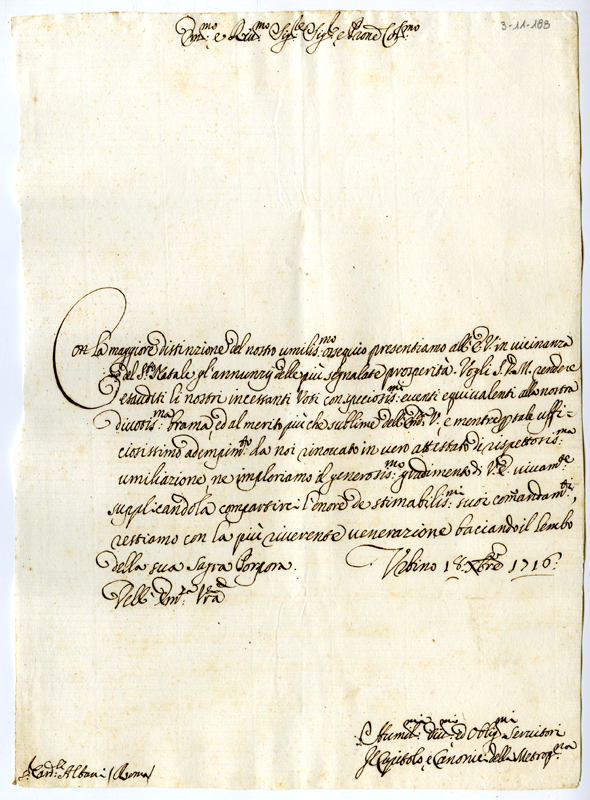 3-11-183
Em.mo e Rev.mo Sig.re Sig.re e Prone Col.mo
Con la maggiore distinzione del nostro umilis.mo ossequio presentiamo all'E.V. in vicinanza
del S.to Natale gl'annunzy delle più segnalate prosperità. Vogli S.D.M. rendere
esauditi li nostri incessanti Voti con speciosis.mi eventi equivalenti alla nostra
divotis.ma brama, ed al merito più che sublime dell'Em.V.; e mentre tale uffi-
ciosissimo adempim.to da noi rinovato in vero attestato di rispettosis.ma
umiliazione, ne imploriamo il generosis.mo gradimento di V.E. vivam.te
supplicandola compartirci l'onore de stimabilis.mi suoi comandam.ti,
restiamo con la più riverente venerazione baciando il lembo
della sua Sagra Porpora. Urbino 18 Xbre 1716.
Dell'Em.za V.ra
Humil.mi Div.mi ed Oblig.mi Servitori
Il Capitolo, e Canonici della Metrop.na
Card.le Albani (Roma)